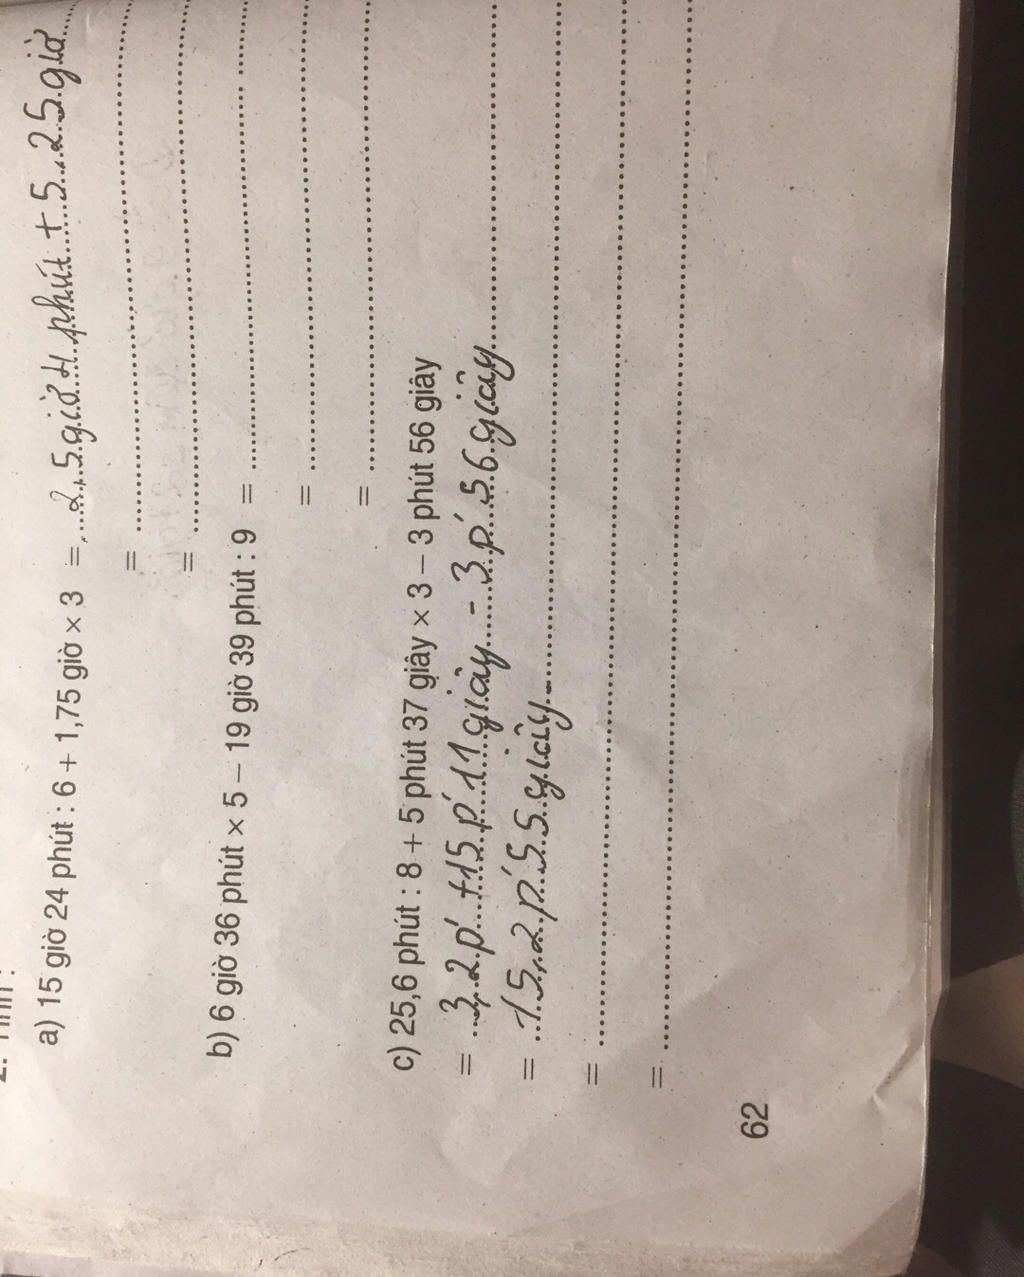 a) 15 giờ 24 phút : 6 + 1,75 giờ × 3 = 2,5 giờ 4 phút + 5,25 giờ
=
=
b) 6 giờ 36 phút × 5 – 19 giờ 39 phút : 9 =
=
=
c) 25,6 phút : 8 + 5 phút 37 giây × 3 – 3 phút 56 giây
= 3,2 p' + 15 p' 11 giây - 3 p' 56 giây
= 15,2 p' 55 giây
=
=
62